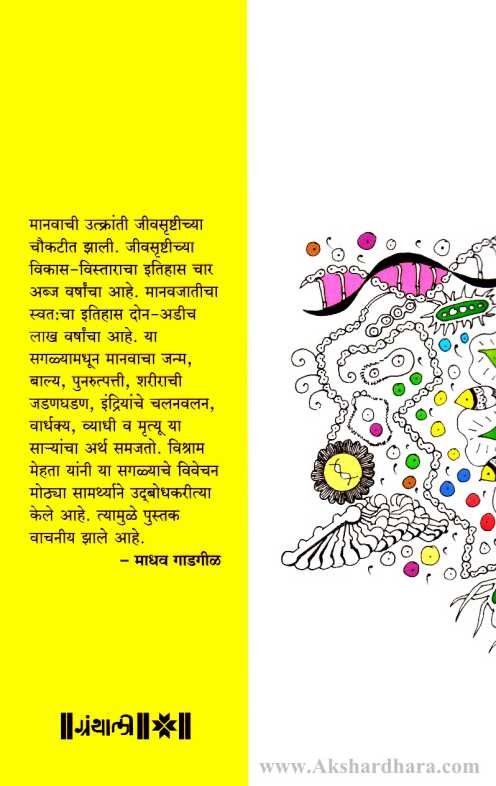 मानवाची उत्क्रांती जीवसृष्टीच्या
चौकटीत झाली. जीवसृष्टीच्या
विकास-विस्ताराचा इतिहास चार
अब्ज वर्षांचा आहे. मानवजातीचा
स्वत:चा इतिहास दोन-अडीच
लाख वर्षांचा आहे. या
सगळ्यामधून मानवाचा जन्म,
बाल्य, पुनरुत्पत्ती, शरीराची
जडणघडण, इंद्रियांचे चलनवलन,
वार्धक्य, व्याधी व मृत्यू या
साऱ्यांचा अर्थ समजतो. विश्राम
मेहता यांनी या सगळ्याचे विवेचन
मोठ्या सामर्थ्याने उद्‌बोधकरीत्या
केले आहे. त्यामुळे पुस्तक
वाचनीय झाले आहे.
– माधव गाडगीळ
॥ग्रंथाली॥
www.Akshardhara.com